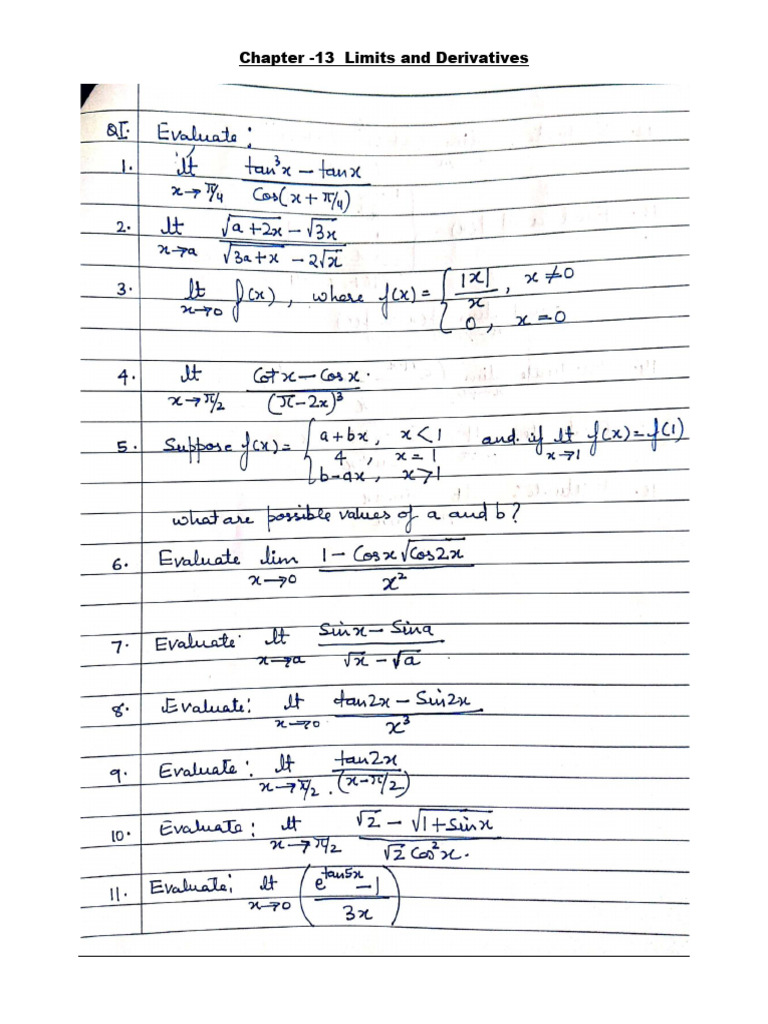 Chapter -13 Limits and Derivatives
QI. Evaluate:
1. lt x→π/4 (tan³x − tanx)/(Cos(x + π/4))
2. lt x→a (√(a+2x) − √(3x))/(√(3a+x) − 2√x)
3. lt x→0 f(x), where f(x) = { |x|/x, x≠0
0, x=0
4. lt x→π/2 (Cotx − Cosx)/(π−2x)³
5. Suppose f(x) = { a+bx, x<1
4, x=1 and if lt x→1 f(x) = f(1)
b−ax, x>1
what are possible values of a and b?
6. Evaluate lim x→0 (1 − Cosx√(Cos2x))/x²
7. Evaluate lt x→a (Sinx − Sina)/(√x − √a)
8. Evaluate: lt x→0 (tan2x − Sin2x)/x³
9. Evaluate: lt x→π/2 tan2x/(x−π/2)
10. Evaluate: lt x→π/2 (√2 − √(1+sinx))/(√2 Cos²x).
11. Evaluate: lt x→0 ((e^tan5x − 1)/3x)